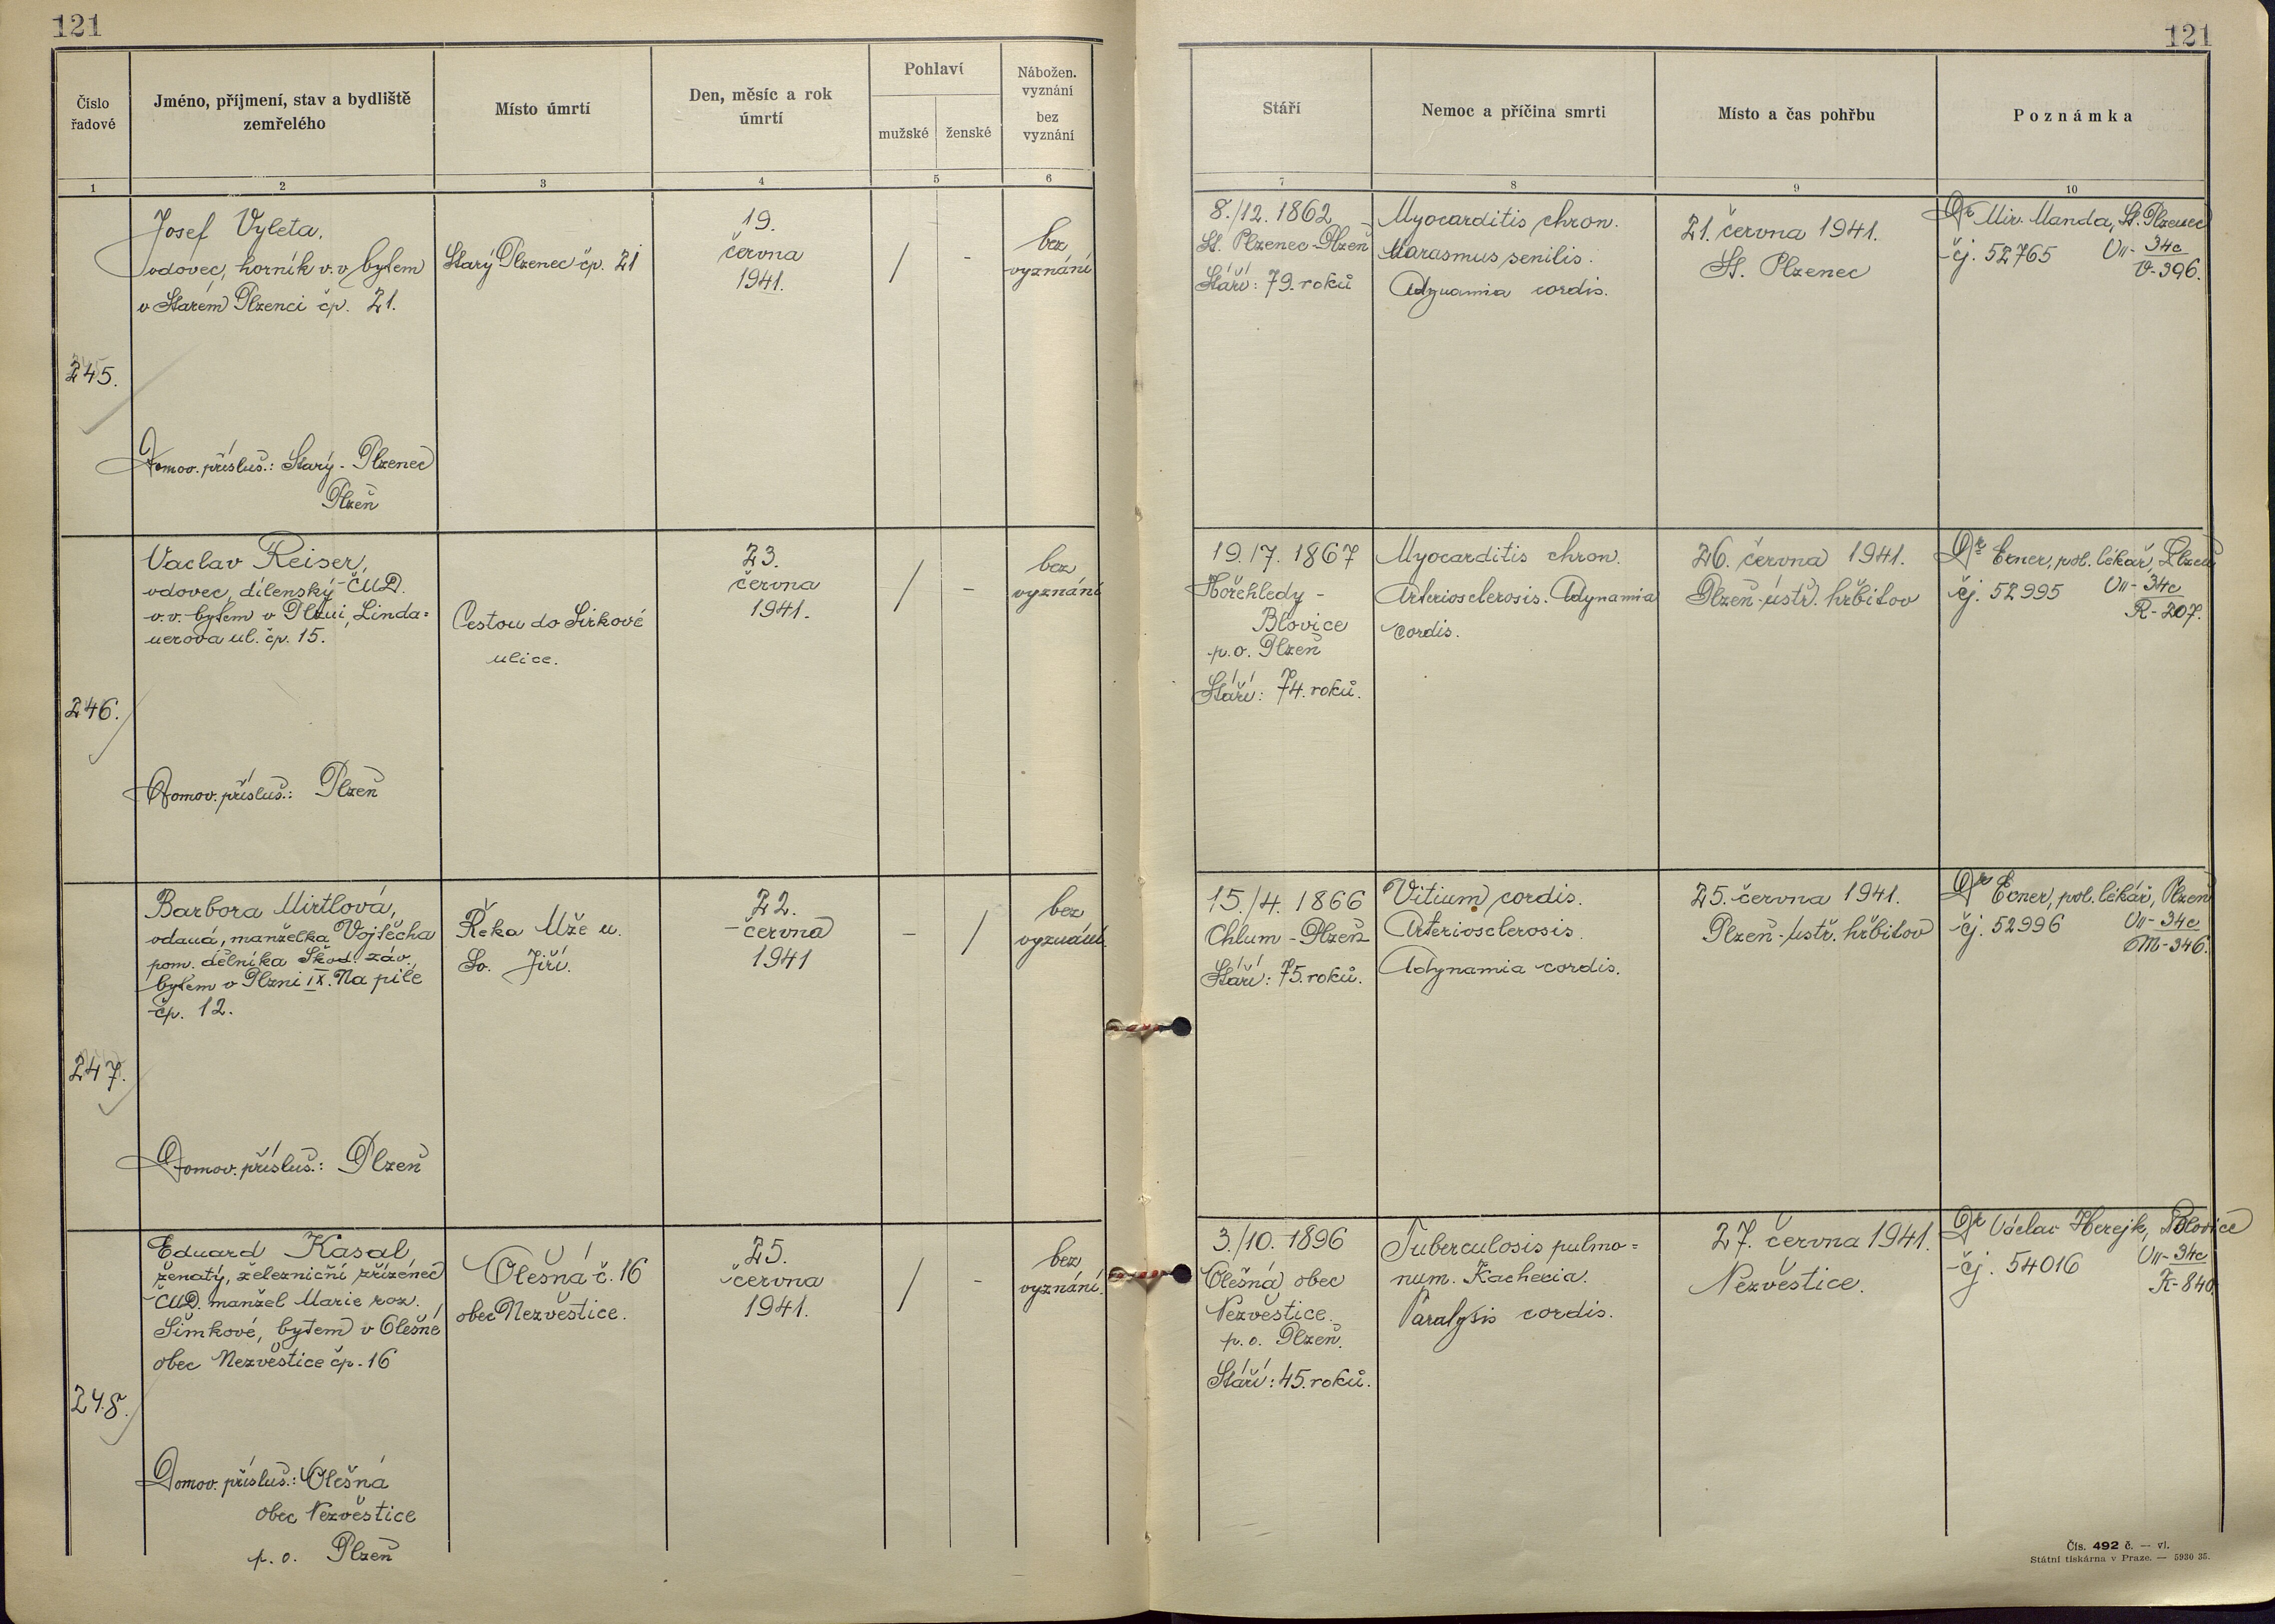 121
121
Číslo
řadové
Jméno, příjmení, stav a bydliště
zemřelého
Místo úmrtí
Den, měsíc a rok
úmrtí
Pohlaví
mužské
ženské
Nábožen.
vyznání
bez
vyznání
Stáří
Nemoc a příčina smrti
Místo a čas pohřbu
Poznámka
1
2
3
4
5
6
7
8
9
10
245.
Josef Vyleta,
vdovec, horník v.v. bytem
v Starém Plzenci čp. 21.
Domov. přísluš.: Starý-Plzenec
Plzeň
Starý Plzenec čp. 21
19.
června
1941.
/
-
bez
vyznání
8./12. 1862
St. Plzenec-Plzeň
Stáří: 79. roků
Myocarditis chron.
Marasmus senilis.
Adynamia cordis.
21. června 1941.
St. Plzenec
Dr Mir. Manda, St. Plzenec
čj. 52765 VII-34c
V-396.
246.
Vaclav Reiser,
vdovec, dílenský ČMD.
v.v. bytem v Plzni, Linda=
uerova ul. čp. 15.
Domov. přísluš.: Plzeň
Cestou do Sirkové
ulice.
23.
června
1941.
/
-
bez
vyznání
19./7. 1867
Hořehledy-
Blovice
p.o. Plzeň
Stáří: 74. roků.
Myocarditis chron.
Arteriosclerosis. Adynamia
cordis.
26. června 1941.
Plzeň-ústř. hřbitov
Dr Ebner, pol. lékař, Plzeň
čj. 52995 VII-34c
R-207.
247.
Barbora Mirtlová,
vdaná, manželka Vojtěcha
pom. dělníka Škod. záv.
bytem v Plzni IX. Na pile
čp. 12.
Domov. přísluš.: Plzeň
Řeka Mže u.
Sv. Jiří.
22.
června
1941
-
/
bez
vyznání.
15./4. 1866
Chlum-Plzeň
Stáří: 75. roků.
Vitium cordis.
Arteriosclerosis.
Adynamia cordis.
25. června 1941.
Plzeň-ústř. hřbitov
Dr Ebner, pol. lékář, Plzeň
čj. 52996 VII-34c
M-346.
248.
Eduard Kasal,
ženatý, železniční zřízenec
ČMD. manžel Marie roz.
Šimkové, bytem v Olešné
obec Nezvěstice čp. 16
Domov. přísluš.: Olešná
obec Nezvěstice
p. o. Plzeň
Olešná č. 16
obec Nezvěstice.
25.
června
1941.
/
-
bez
vyznání.
3./10. 1896
Olešná obec
Nezvěstice.
p. o. Plzeň.
Stáří: 45. roků.
Tuberculosis pulmo=
num. Kachexia.
Paralysis cordis.
27. června 1941.
Nezvěstice.
Dr Václav Herejk, Blovice
čj. 54016 VII-34c
K-840
Čís. 492 č. — vl.
Státní tiskárna v Praze. — 5930 35.